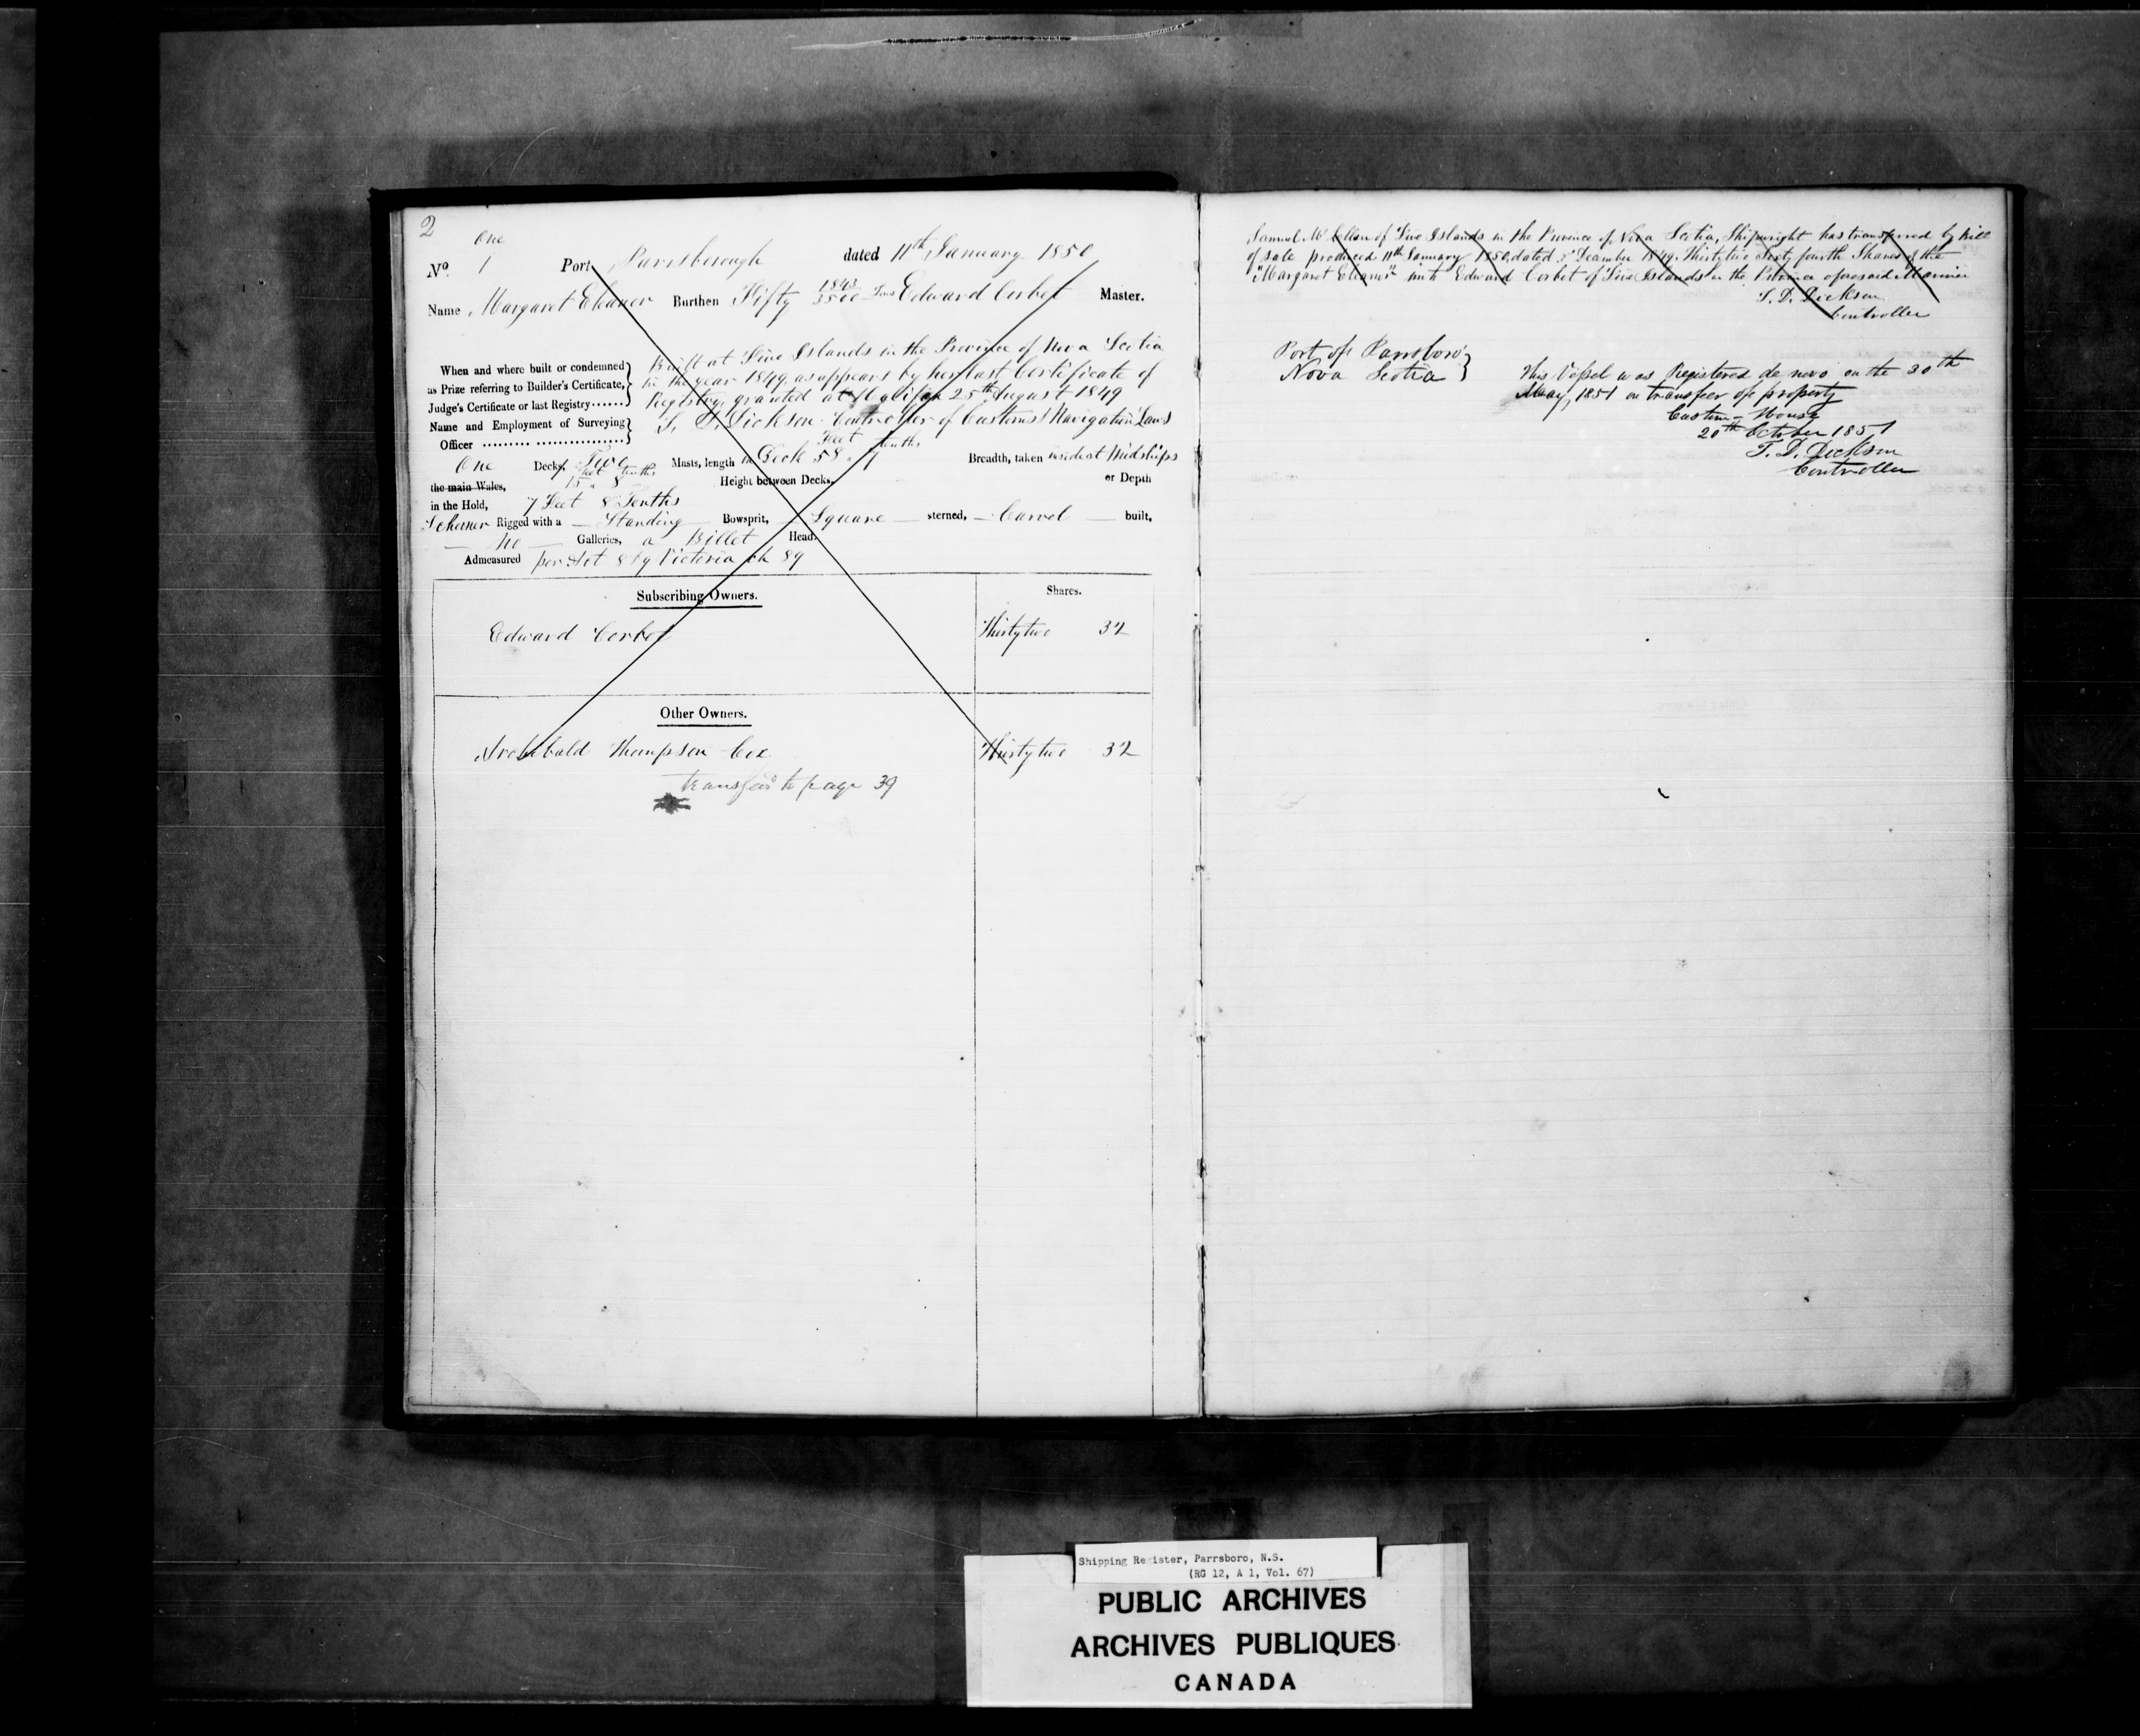 2
One
No. 1 Port Parrsborough dated 11th January 1850
Name Margaret Eleanor Burthen Fifty 1843/3500 Tons Edward Corbet Master.
When and where built or condemned as Prize referring to Builder's Certificate, Judge's Certificate or last Registry......
Built at Five Islands in the Province of Nova Scotia
in the year 1849, as appears by her last Certificate of
Registry, granted at Halifax 25th August 1849
Name and Employment of Surveying Officer ......... ................
T. D. Dickson Controller of Customs & Navigation Laws
Feet tenths
One Decks, Two Masts, length on Deck 58 " 1 Breadth, taken inside at Midships
feet tenths
the main Wales, 15 " 8 Height between Decks, or Depth
in the Hold, 7 Feet 8 Tenths
Schooner Rigged with a Standing Bowsprit, Square sterned, Carvel built,
No Galleries, a Billet Head.
Admeasured per Act 8 & 9 Victoria ch 89
Subscribing Owners. Shares.
Edward Corbet Thirty two 32
Other Owners.
Archibald Thompson Cox Thirty two 32
transfer to page 39
Samuel McClellan of Five Islands in the Province of Nova Scotia, Shipwright has transferred by bill
of sale produced 11th January 1850, dated December 1849 Thirty two Sixty fourth Shares of the
"Margaret Eleanor" unto Edward Corbet of Five Islands in the Province aforesaid Mariner
T. D. Dickson
Controller
Port of Parrsboro'
Nova Scotia
This Vessel was Registered de novo on the 30th
May, 1851 on transfer of property
Custom-House
20th October 1851
T. D. Dickson
Controller
Shipping Register, Parrsboro, N.S.
(RG 12, A 1, Vol. 67)
PUBLIC ARCHIVES
ARCHIVES PUBLIQUES
CANADA